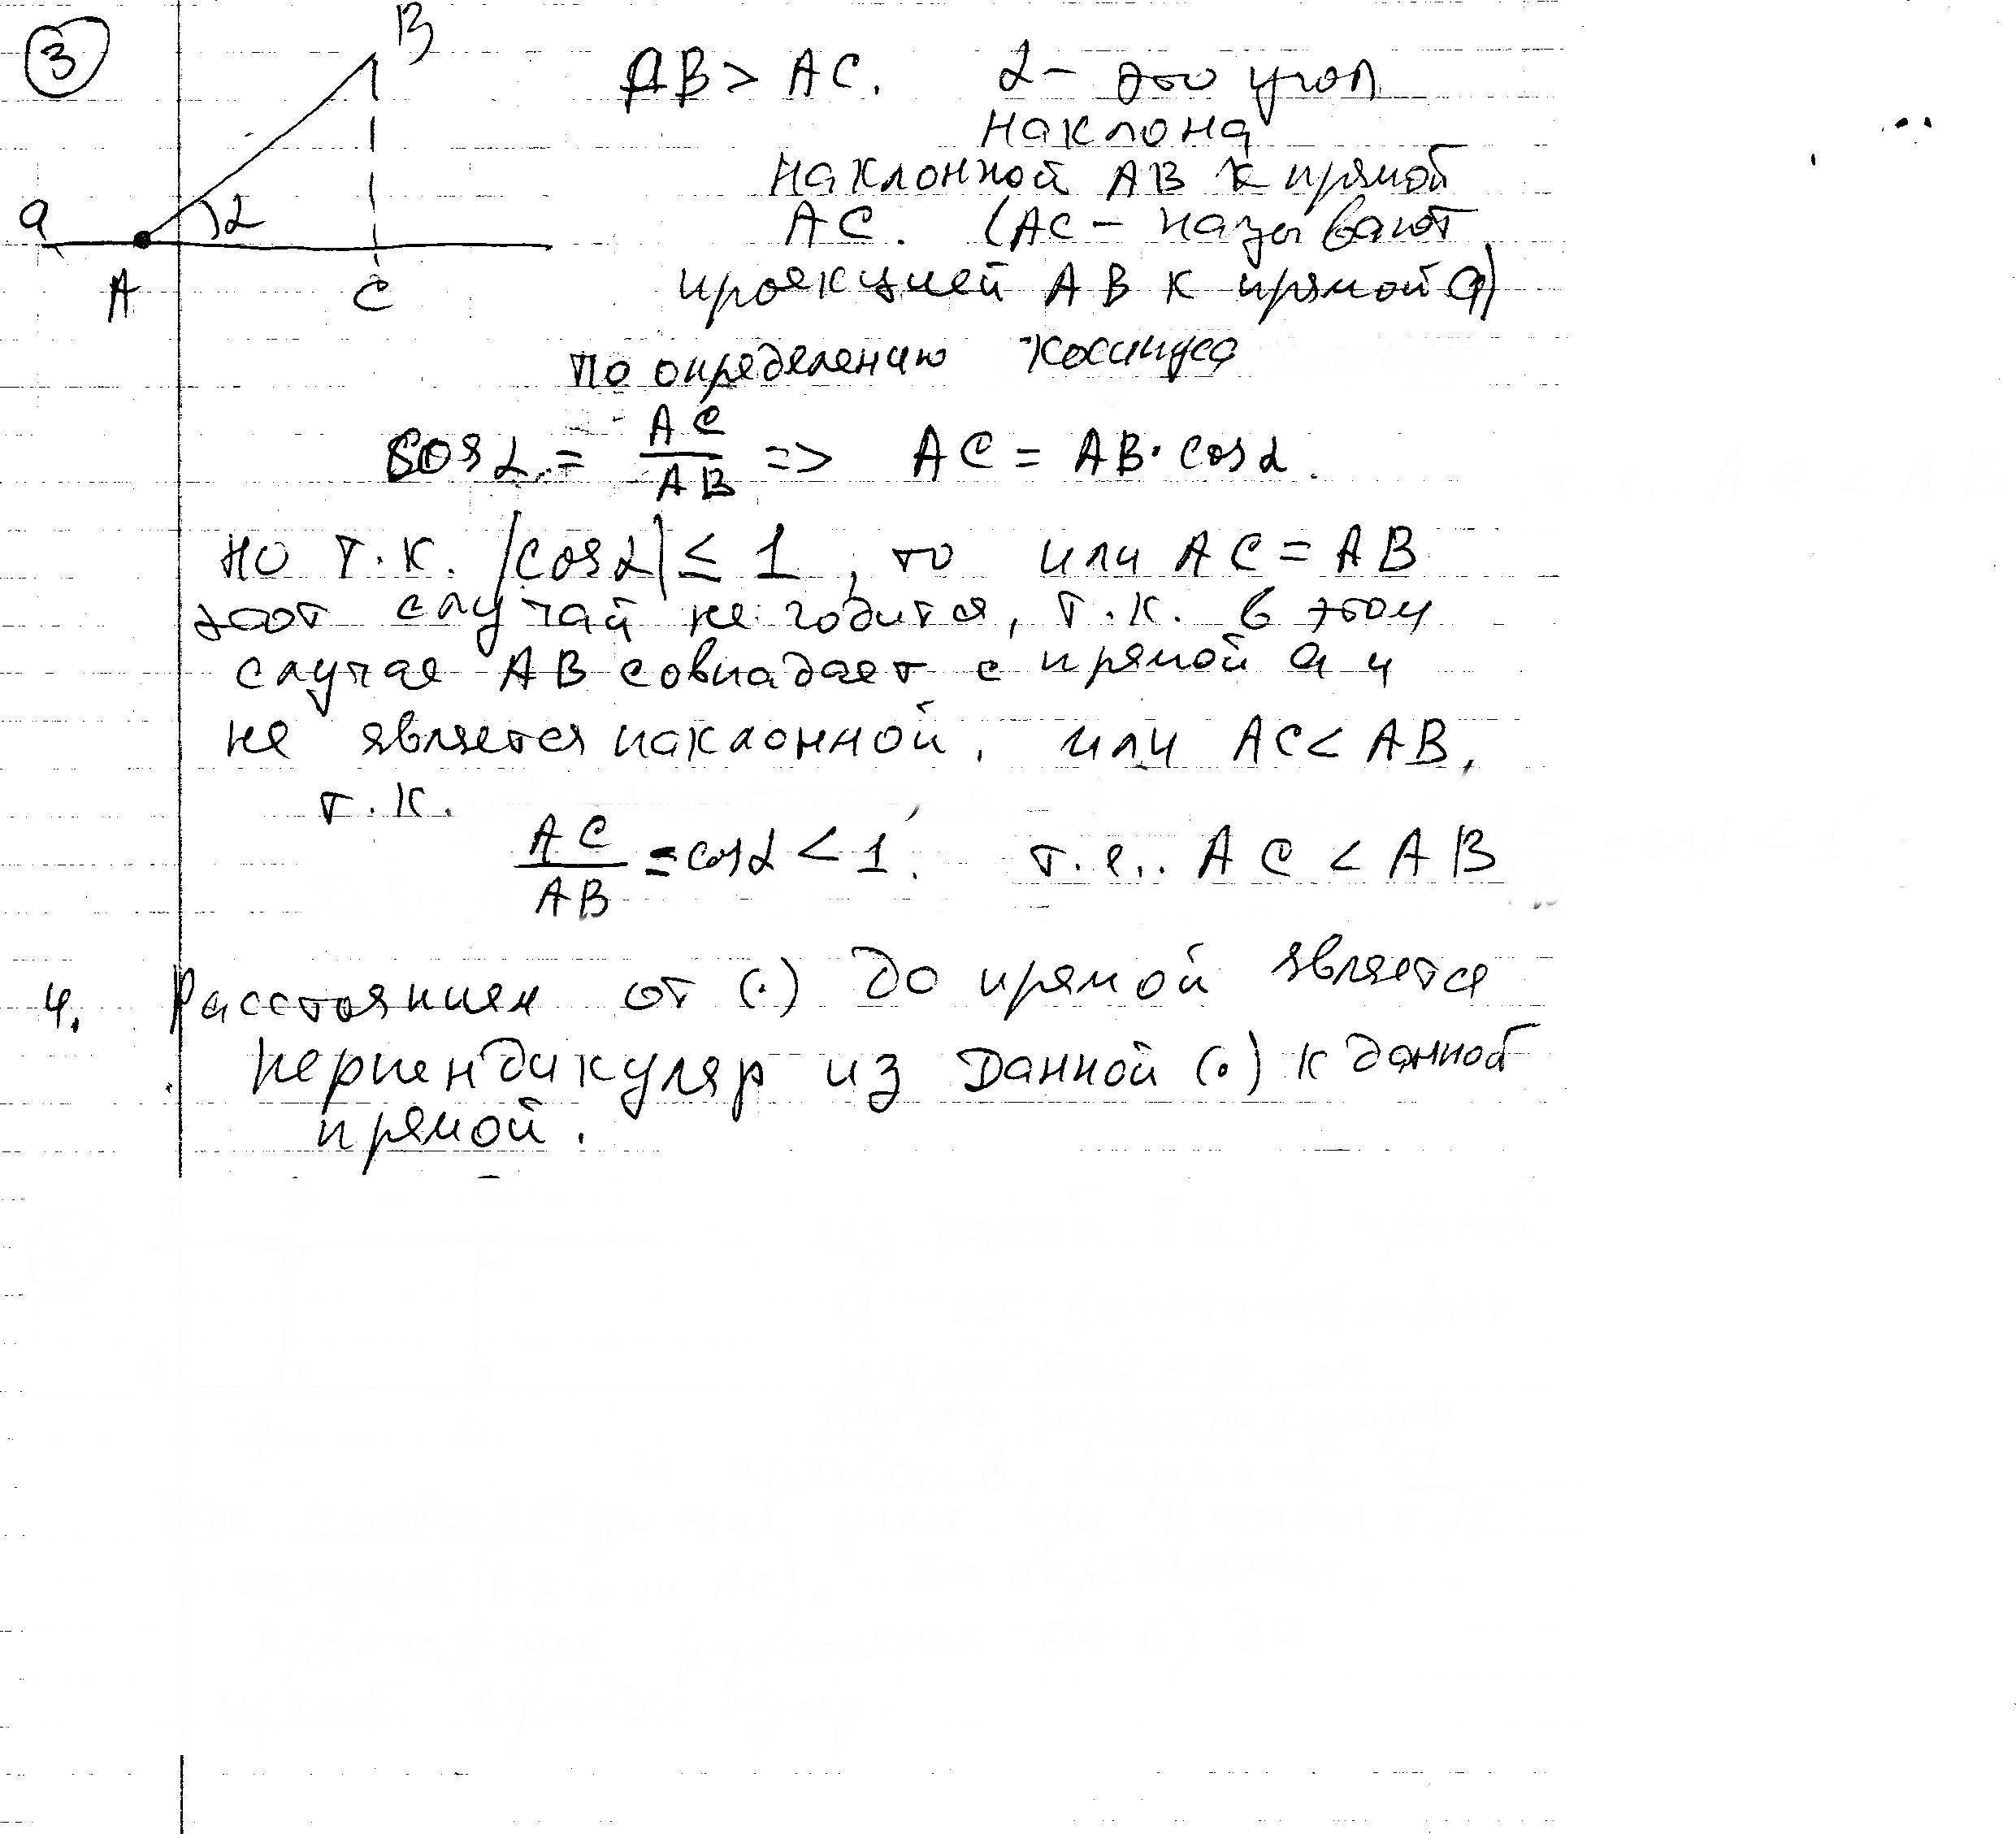 3
B
a
α
A
C
AB > AC. α – это угол
наклона
наклонной AB к прямой
AC. (AC – называют
проекцией AB к прямой a)
по определению косинуса
cos α = AC/AB => AC = AB · cos α.
но т.к. |cos α| ≤ 1, то или AC = AB
этот случай не годится, т.к. в этом
случае AB совпадает с прямой a и
не является наклонной, или AC < AB,
т.к.
AC/AB = cos α < 1. т.е. AC < AB
4. Расстоянием от (·) до прямой является
перпендикуляр из данной (·) к данной
прямой.